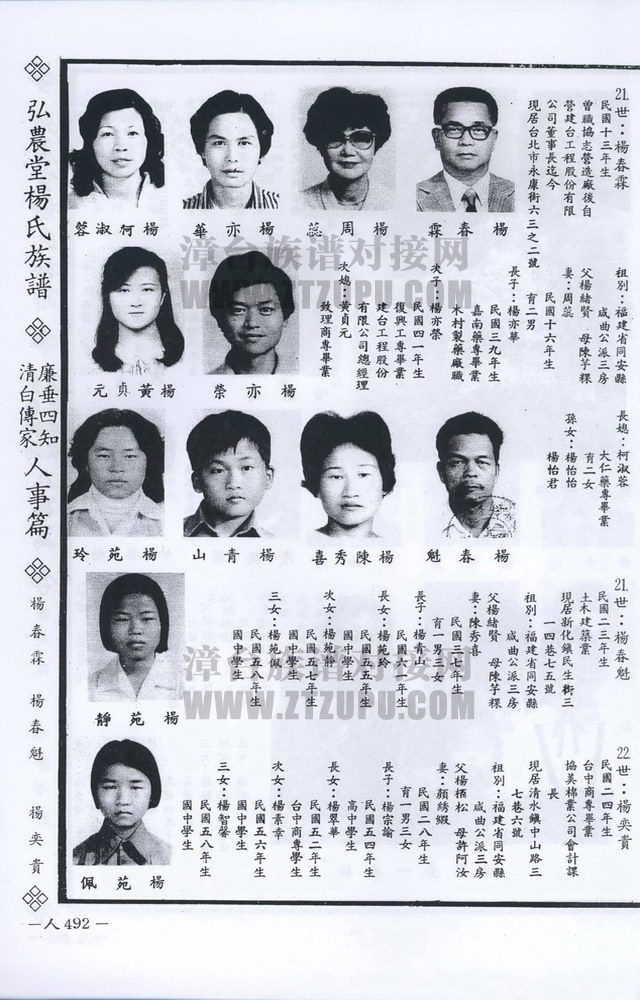 21.世：楊春霖
民國十三年生
曾職協志營造廠後自
營建台工程股份有限
公司董事長迄今
現居台北市永康街六三之二號
祖別：福建省同安縣
咸曲公派三房
父楊緒賢　母陳芋粿
妻：周蕊
民國十六年生
育二男
長子：楊亦華
民國三九年生
嘉南藥專畢業
木村製藥廠職
次子：楊亦榮
民國四一年生
復興工專畢業
建台工程股份
有限公司總經理
次媳：黃貞元
致理商專畢業
長媳：柯淑蓉
大仁藥專畢業
育二女
孫女：楊怡怡
楊怡君
蓉淑柯楊
華亦楊
蕊周楊
霖春楊
元貞黃楊
榮亦楊
玲苑楊
山青楊
喜秀陳楊
魁春楊
靜苑楊
佩苑楊
21.世：楊春魁
民國二三年生
土木建築業
現居新化鎮民生街三
一四巷七五號
祖別：福建省同安縣
咸曲公派三房
父楊緒賢　母陳芋粿
妻：陳秀喜
民國二七年生
育一男三女
長子：楊青山
民國六一年生
長女：楊苑玲
民國五五年生
國中學生
次女：楊苑靜
民國五七年生
國中學生
三女：楊苑佩
民國五八年生
國中學生
22.世：楊奕貴
民國二四年生
台中商專畢業
協美棉業公司會計課
長
現居清水鎮中山路三
七巷六號
祖別：福建省同安縣
咸曲公派三房
父楊栢松　母許阿汝
妻：顏綉緞
民國二八年生
育一男三女
長子：楊宗諭
民國五四年生
高中學生
長女：楊翠華
民國五二年生
台中商專學生
次女：楊素幸
民國五六年生
國中學生
三女：楊智馨
民國五八年生
國中學生
弘農堂楊氏族譜
廉垂四知
清白傳家
人事篇
楊春霖　楊春魁　楊奕貴
－人492－
漳台族谱对接网
WWW.ZTZUPU.COM
漳台族谱对接网
WWW.ZTZUPU.COM